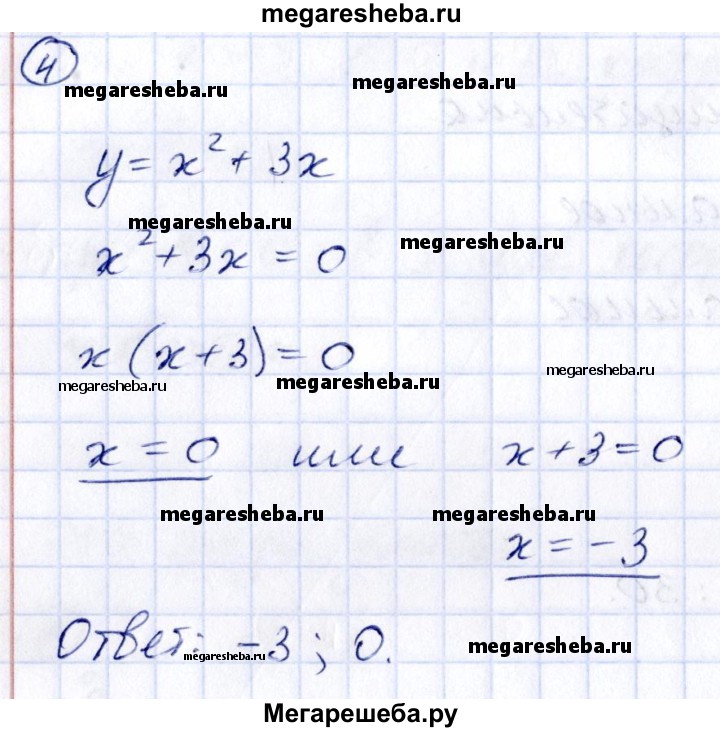 megaresheba.ru
4
megaresheba.ru megaresheba.ru
y = x² + 3x
megaresheba.ru megaresheba.ru
x² + 3x = 0
x (x + 3) = 0
megaresheba.ru megaresheba.ru megaresheba.ru
x = 0 или x + 3 = 0
megaresheba.ru megaresheba.ru
x = -3
Ответ: -3 ; 0.
megaresheba.ru megaresheba.ru
Мегарешеба.ру